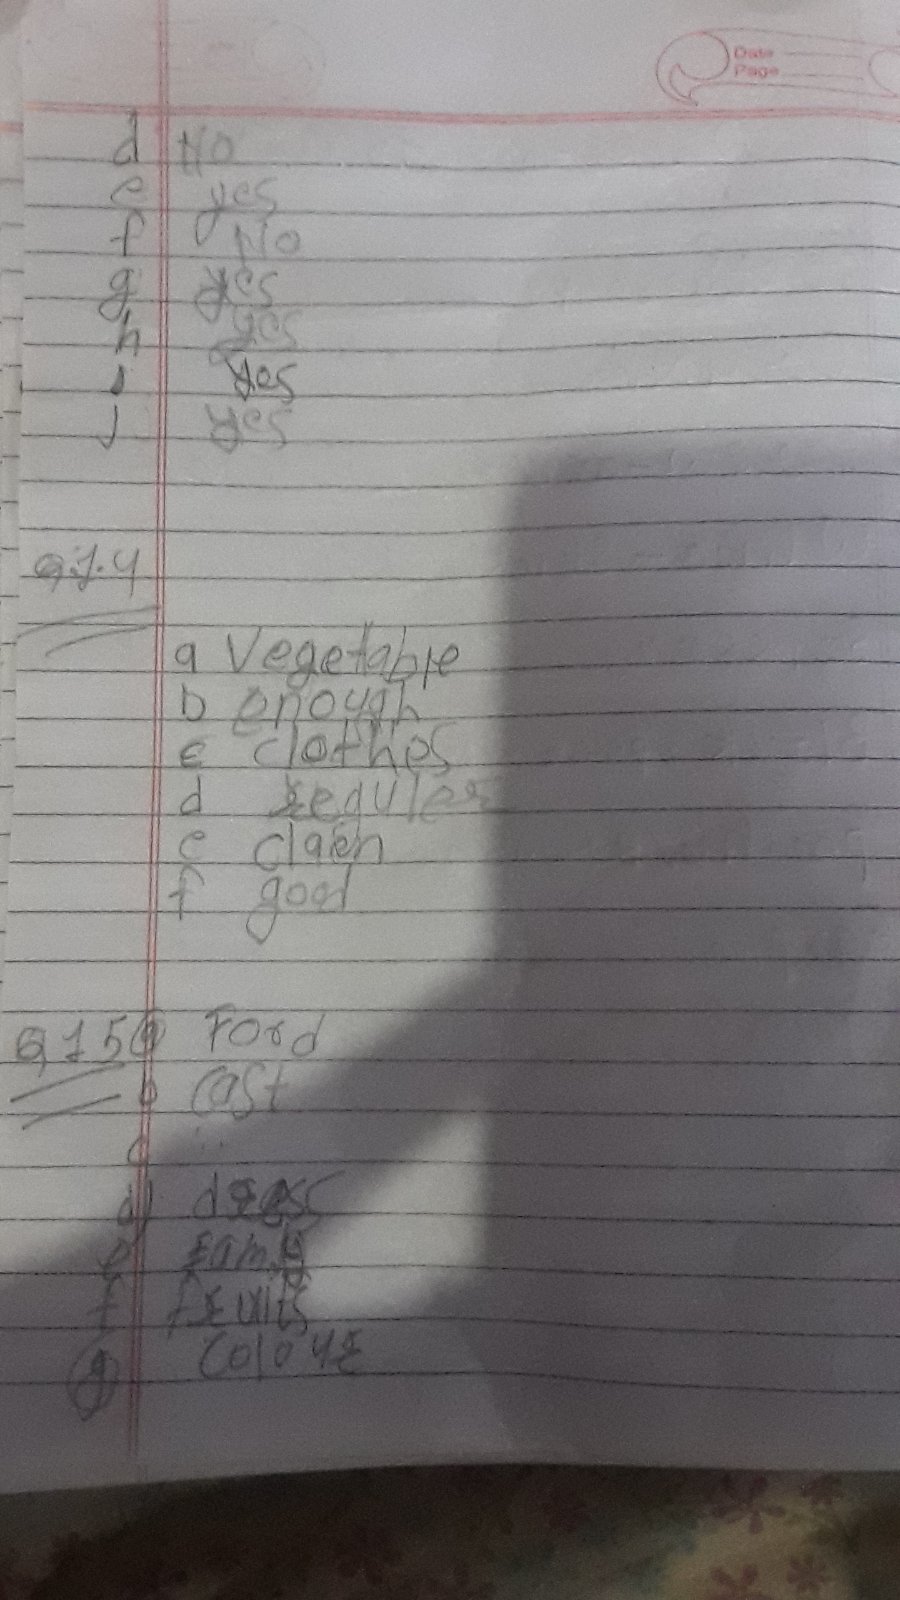 Date
Page
d No
e yes
f No
g yes
h yes
i yes
j yes
Q.1.4
a Vegetable
b enough
c clothes
d reguler
e claen
f good
Q15 a Ford
b cast
c
d) dress
e
f fruits
g colour